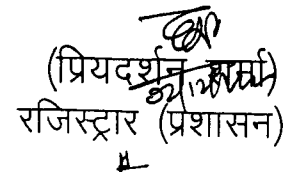 (प्रियदर्शन शर्मा)
रजिस्ट्रार (प्रशासन)